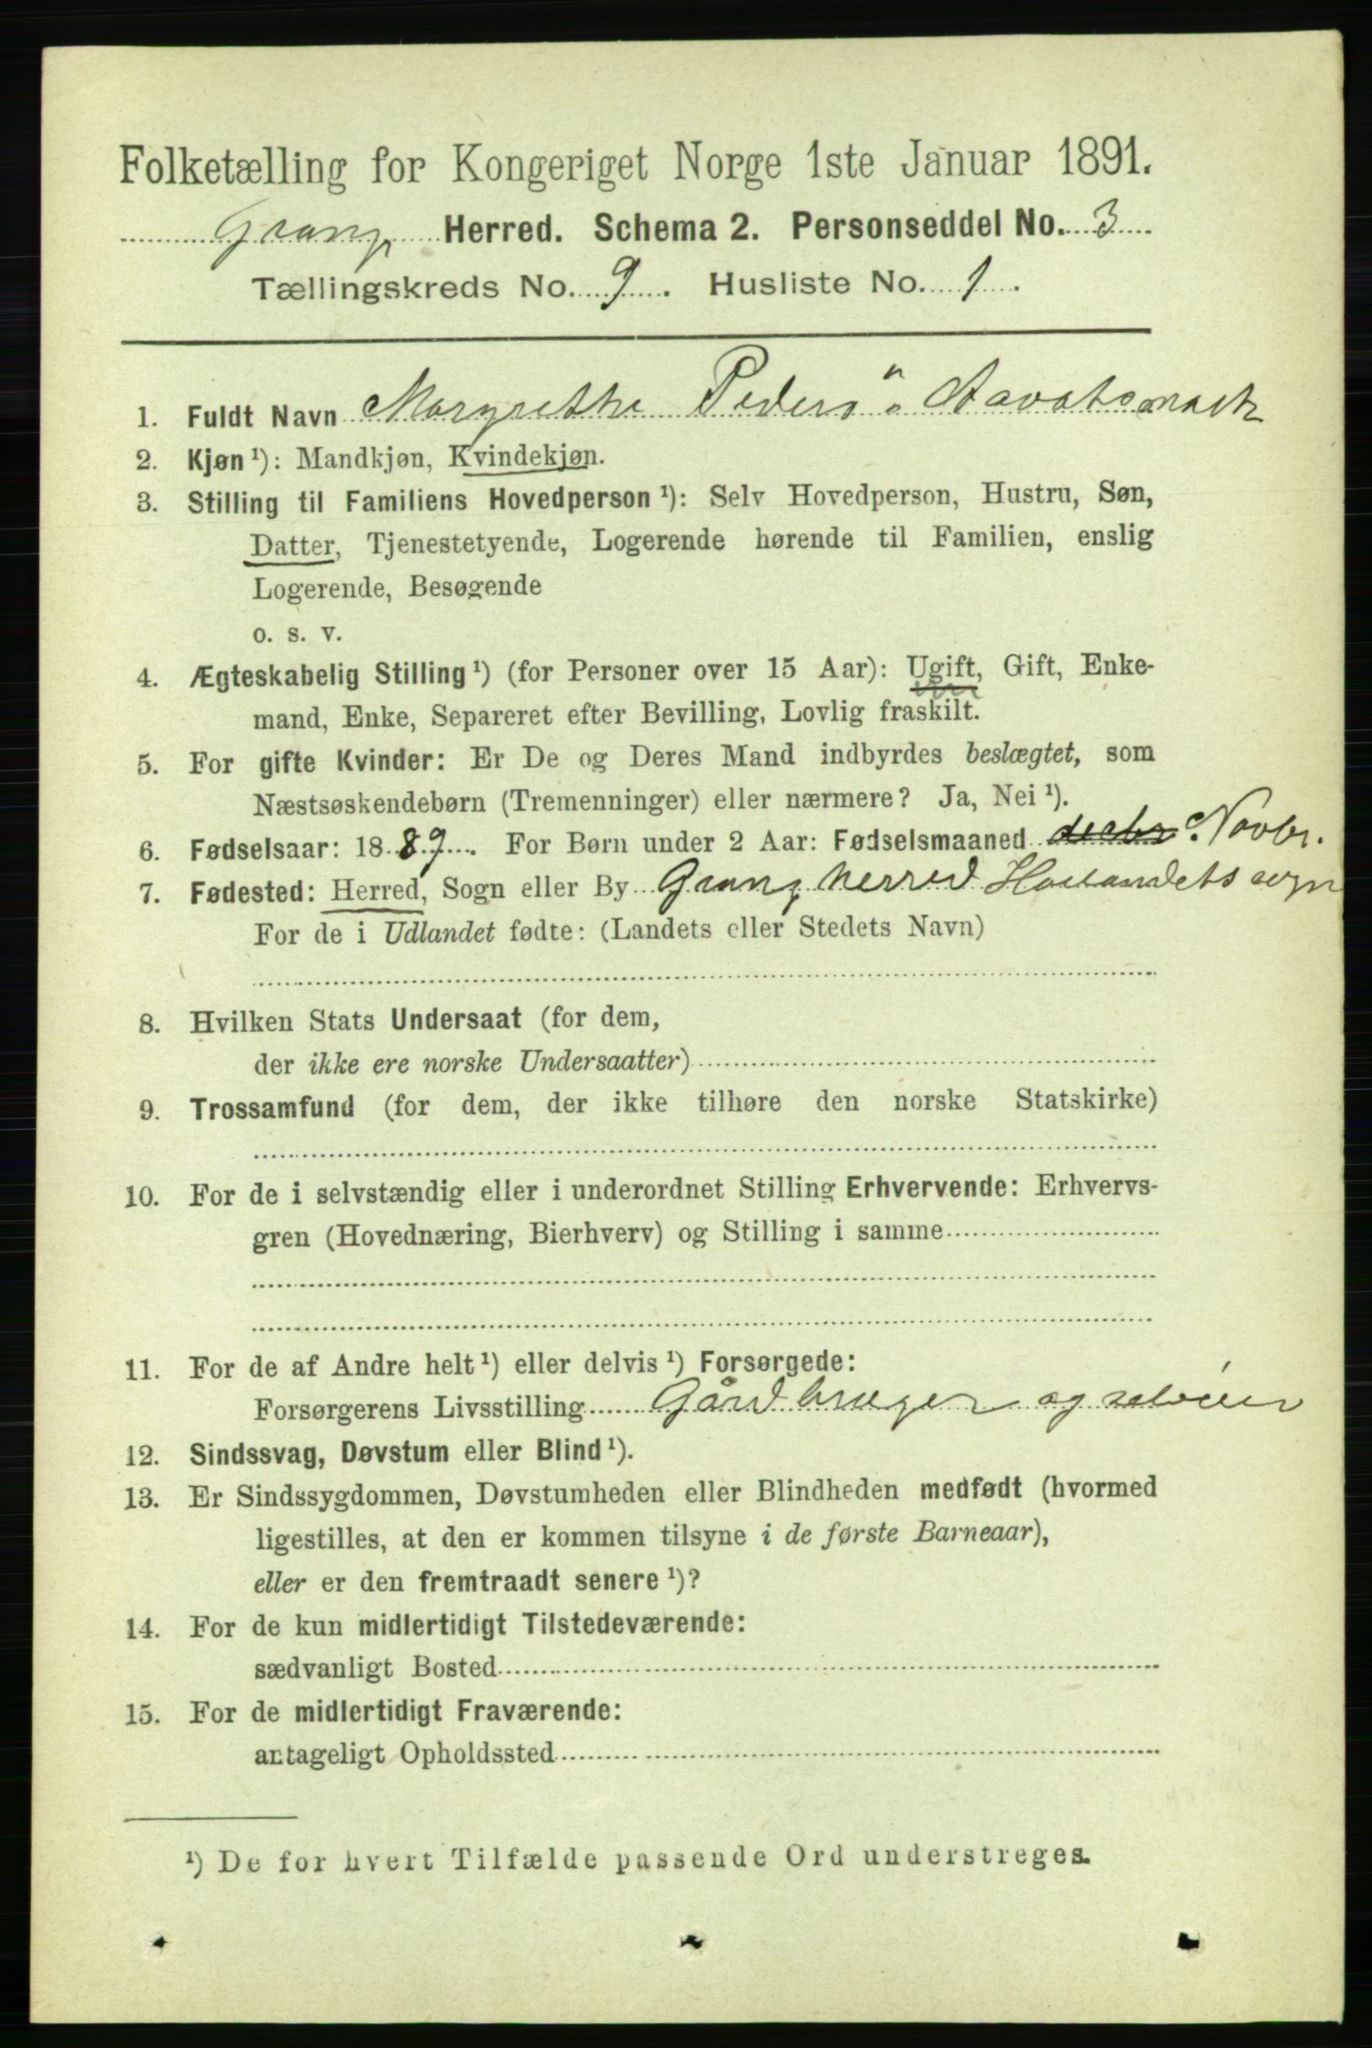 Folketælling for Kongeriget Norge 1ste Januar 1891.
Grong Herred. Schema 2. Personseddel No. 3
Tællingskreds No. 9. Husliste No. 1.
1. Fuldt Navn Margrethe Peders" Aavatsmark
2. Kjøn ¹): Mandkjøn, Kvindekjøn.
3. Stilling til Familiens Hovedperson ¹): Selv Hovedperson, Hustru, Søn,
Datter, Tjenestetyende, Logerende hørende til Familien, enslig
Logerende, Besøgende
o. s. v.
4. Ægteskabelig Stilling ¹) (for Personer over 15 Aar): Ugift, Gift, Enke-
mand, Enke, Separeret efter Bevilling, Lovlig fraskilt.
5. For gifte Kvinder: Er De og Deres Mand indbyrdes beslægtet, som
Næstsøskendebørn (Tremenninger) eller nærmere? Ja, Nei ¹).
6. Fødselsaar: 1889. For Børn under 2 Aar: Fødselsmaaned decbr Novbr.
7. Fødested: Herred, Sogn eller By Grong herred Harlandets sogn
For de i Udlandet fødte: (Landets eller Stedets Navn)
8. Hvilken Stats Undersaat (for dem,
der ikke ere norske Undersaatter)
9. Trossamfund (for dem, der ikke tilhøre den norske Statskirke)
10. For de i selvstændig eller i underordnet Stilling Erhvervende: Erhvervs-
gren (Hovednæring, Bierhverv) og Stilling i samme
11. For de af Andre helt ¹) eller delvis ¹) Forsørgede:
Forsørgerens Livsstilling Gårdbruger og selveier
12. Sindssvag, Døvstum eller Blind ¹).
13. Er Sindssygdommen, Døvstumheden eller Blindheden medfødt (hvormed
ligestilles, at den er kommen tilsyne i de første Barneaar),
eller er den fremtraadt senere ¹)?
14. For de kun midlertidigt Tilstedeværende:
sædvanligt Bosted
15. For de midlertidigt Fraværende:
antageligt Opholdssted
¹) De for hvert Tilfælde passende Ord understreges.